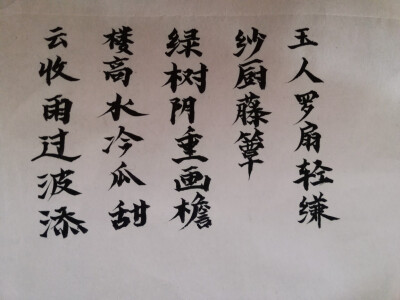 云收雨过波添
楼高水冷瓜甜
绿树阴垂画檐
纱厨藤簟
玉人罗扇轻缣